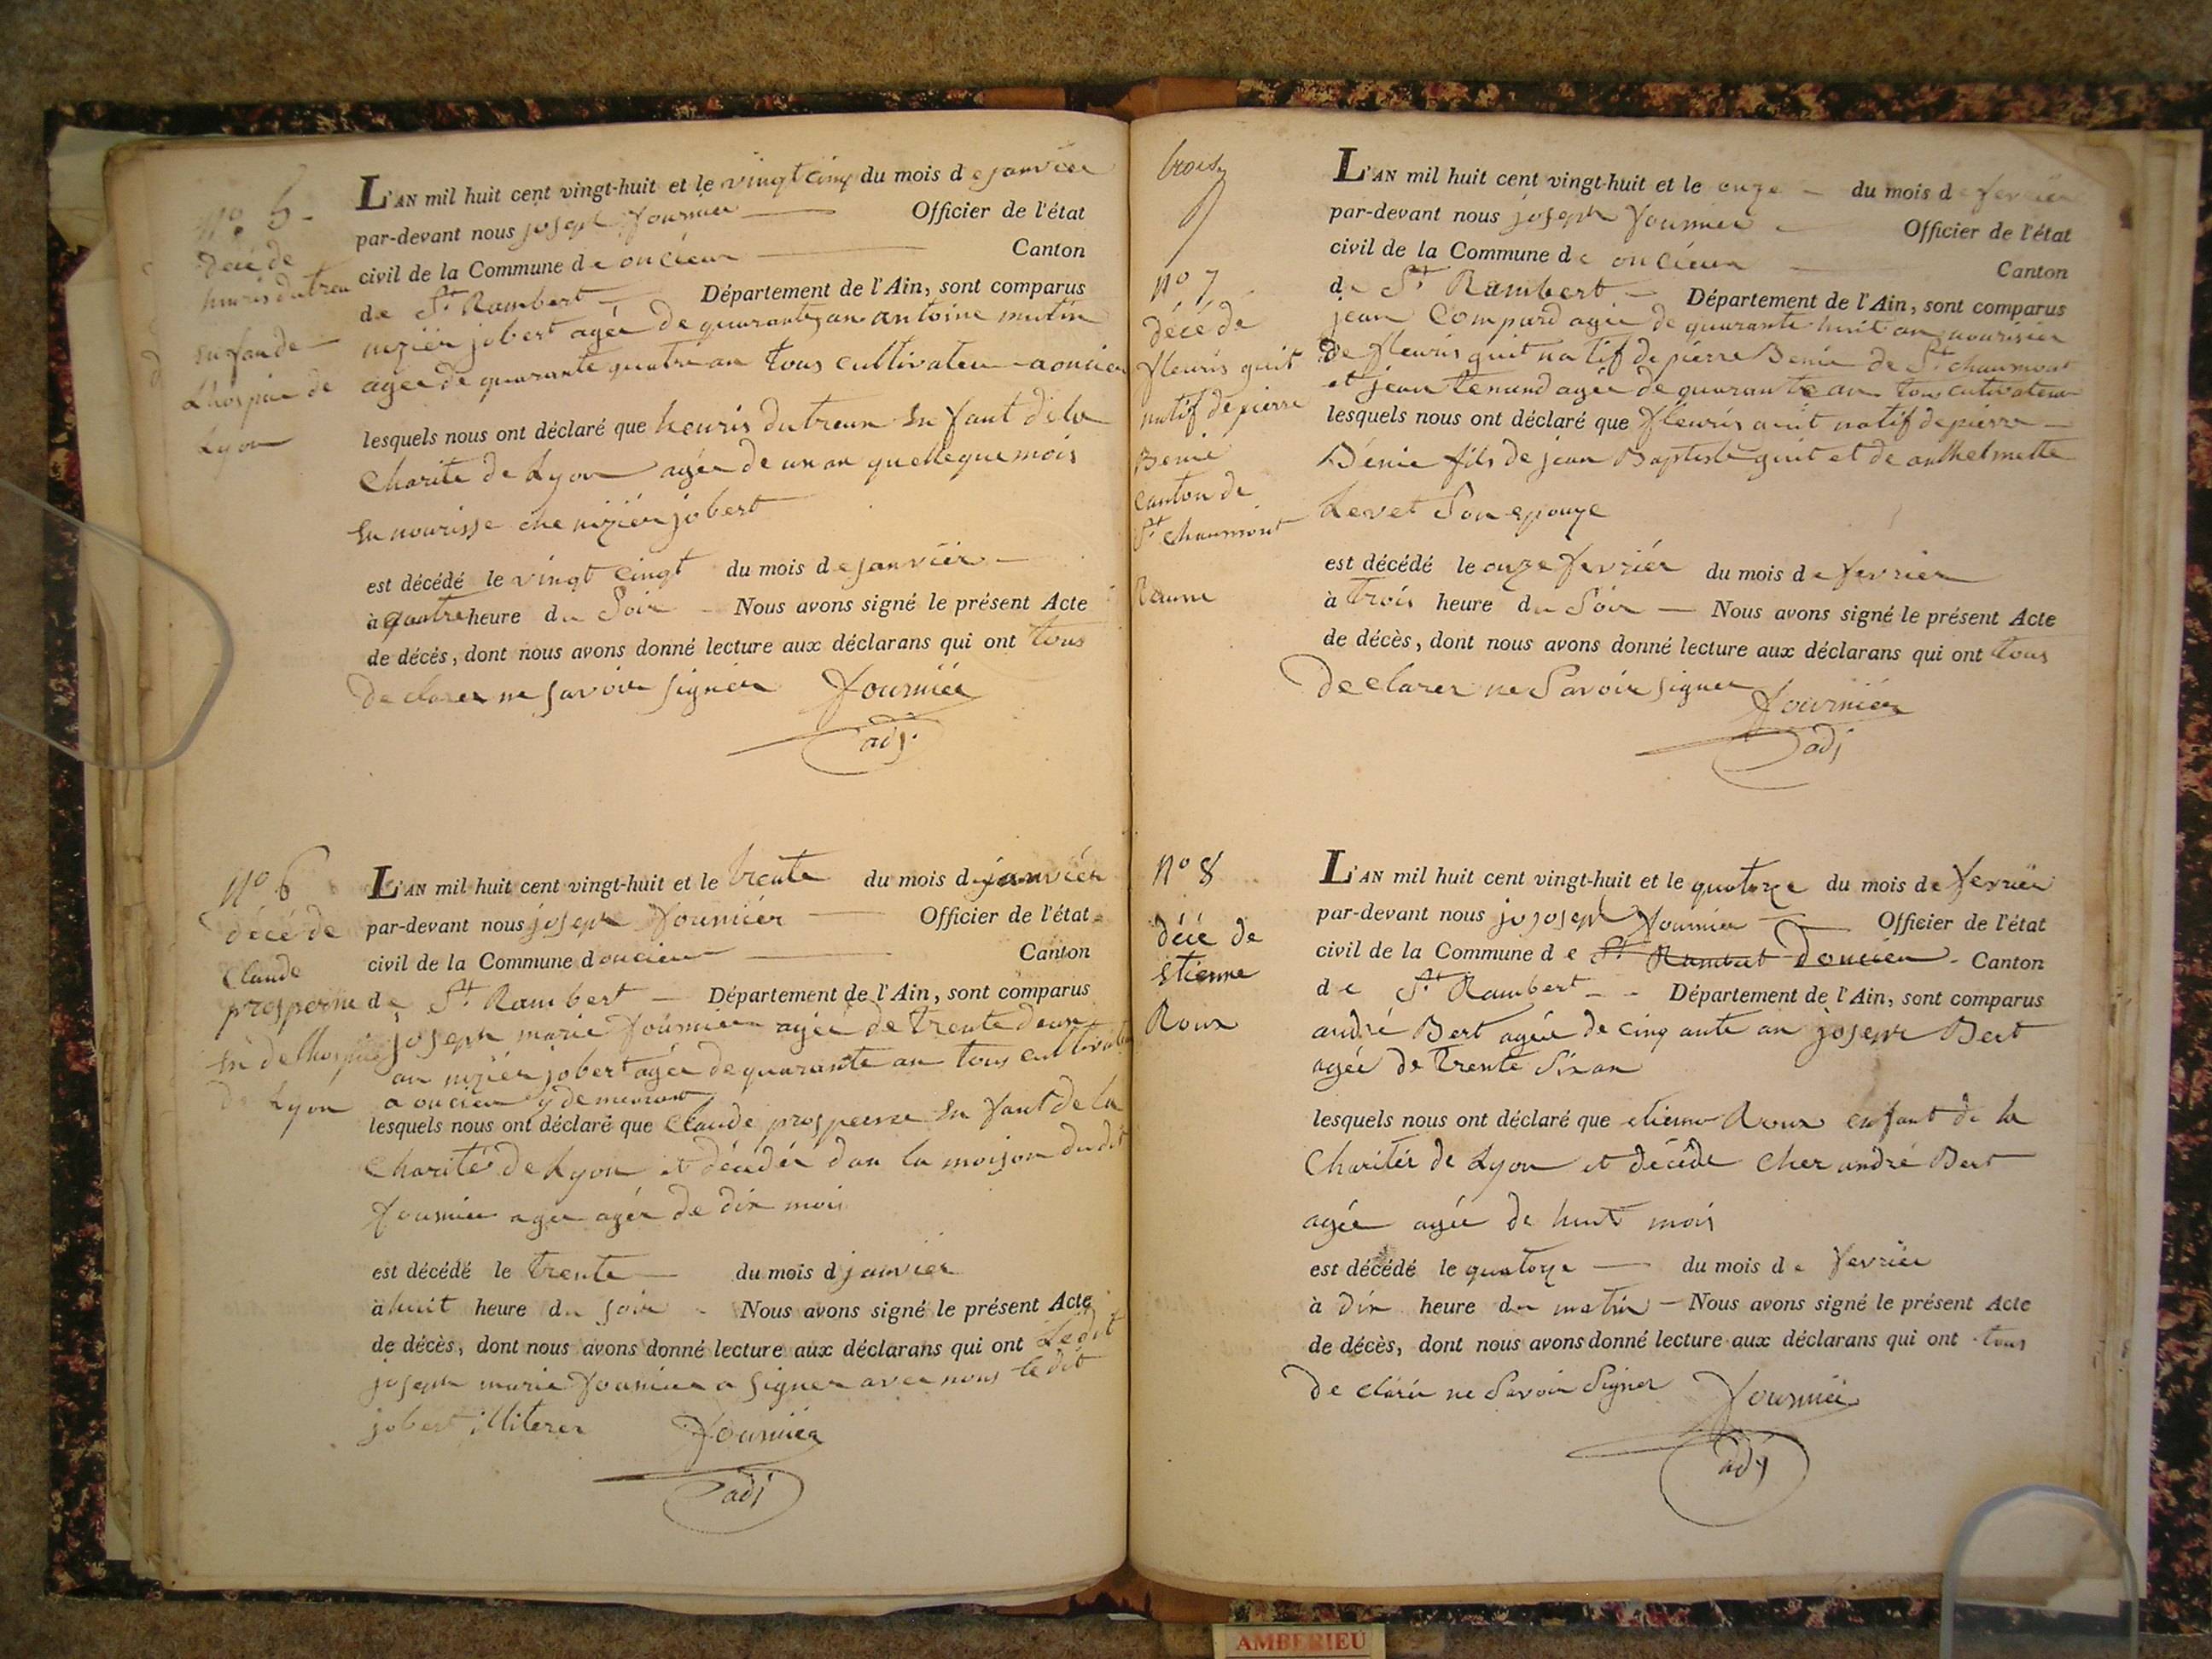 N° 5
décé de
heuris dutreu
enfan de
Lhospice de
Lyon
L'AN mil huit cent vingt-huit et le vingt cinq du mois de janvier
par-devant nous joseph fournier Officier de l'état
civil de la Commune de oncieux Canton
de St Rambert Département de l'Ain, sont comparus
nizier jobert agée de quarante an antoine mutin
agee de quarante quatre an tous cultivateu a oncieu
lesquels nous ont déclaré que heuris dutreux en fant de la
Charite de Lyon agée de un an quelleque mois
en nourisse che nizier jobert
est décédé le vingt cingt du mois de janvier
à quatre heure du Soir Nous avons signé le présent Acte
de décès, dont nous avons donné lecture aux déclarans qui ont tous
de clarer ne savoir signer fournier
adj
N° 6
décé de
Claude
prosperne
en de lhospice
de Lyon
L'AN mil huit cent vingt-huit et le trente du mois d janvier
par-devant nous joseph fournier Officier de l'état
civil de la Commune d oncieu Canton
de St Rambert Département de l'Ain, sont comparus
joseph marie fournier agée de trente deux
an nizier jobert agée de quarante an tous cultivateu
a oncieu y demeurant
lesquels nous ont déclaré que Claude prosperne en fant de la
Charité de Lyon et décédér dan la moison du dit
fournier agee agér de dix mois
est décédé le trente du mois d janvier
à huit heure du soir Nous avons signé le présent Acte
de décès, dont nous avons donné lecture aux déclarans qui ont Ledit
joseph marie fournier a signer avec nous le dit
jobert illiterer fournier
adj
trois
N° 7
décé de
fleuris guit
natif de pierre
Benie
Canton de
St Chaumont
L'AN mil huit cent vingt-huit et le onze du mois de fevrier
par-devant nous joseph fournier Officier de l'état
civil de la Commune de oncieux Canton
de St Rambert Département de l'Ain, sont comparus
jean Compard agée de quarante huit an nourisier
de fleuris guit natif de pierre Benie de St chaumont
et jean tenand agée de quarante an tou cutivateur
lesquels nous ont déclaré que fleuris guit natif de pierre
Bénie fils de jean Baptiste guit et de anthelmette
Levet Son epouze
est décédé le onze fevriér du mois de fevrier
à trois heure du Soir Nous avons signé le présent Acte
de décès, dont nous avons donné lecture aux déclarans qui ont tous
de clarer ne Savoir signer fournier
adj
N° 8
décé de
Etienne
Roux
L'AN mil huit cent vingt-huit et le quatorze du mois de fevrier
par-devant nous jo joseph fournier Officier de l'état
civil de la Commune d e St Rambert Doncieu Canton
de St Rambert Département de l'Ain, sont comparus
andré Bert agée de cinq ante an joseph Bert
agée de trente Six an
lesquels nous ont déclaré que etienne Roux enfant de la
Charitér de Lyon et décéde Cher andré Bert
agée agée de huit mois
est décédé le quatorze du mois de fevrier
à dix heure du matin Nous avons signé le présent Acte
de décès, dont nous avons donné lecture aux déclarans qui ont tous
de clarer ne Savoir Signer fournier
adj
AMBERIEU